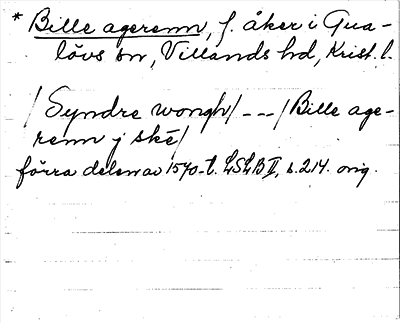 * Bille agerenn, f. åker i Qua-
lövs sn, Villands hd, Krist. l.
/Syndre wongh/ --- /Bille age-
renn j ské/
förra delen av 1570-t. LSLB II, s. 214. orig.